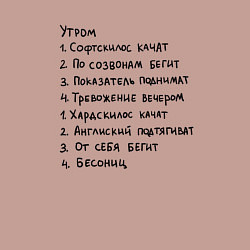 Утром
1. Софтскилос качат
2. По созвонам бегит
3. Показатель поднимат
4. Тревожение вечером
1. Хардскилос качат
2. Англиский подтягиват
3. От себя бегит
4. Бесониц